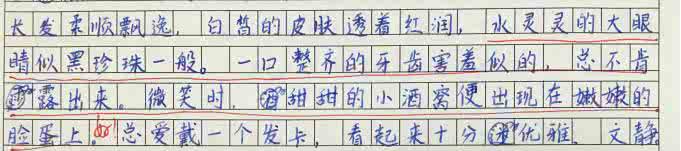 长发柔顺飘逸，白皙的皮肤透着红润，水灵灵的大眼
睛似黑珍珠一般。一口整齐的牙齿害羞似的，总不肯
露出来。微笑时，甜甜的小酒窝便出现在嫩嫩的
脸蛋上。总爱戴一个发卡，看起来十分优雅、文静